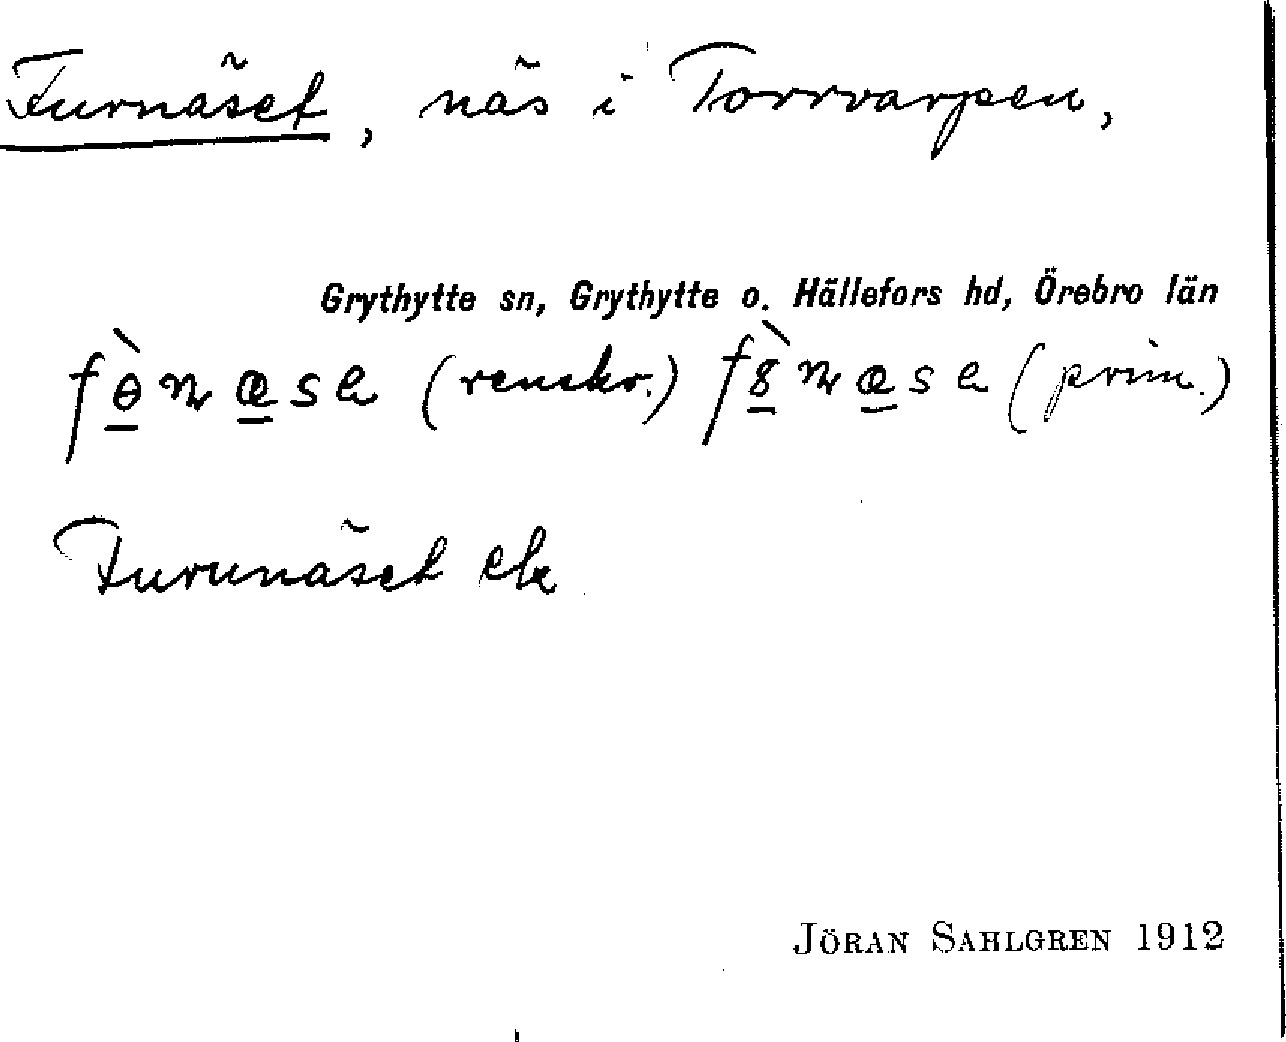 Furnäset, näs i Torrvarpen,
Grythytte sn, Grythytte o. Hällefors hd, Örebro län
fɵ̀næse (renskr.) f8̀næse (prim.)
Furunäset ek
JÖRAN SAHLGREN 1912